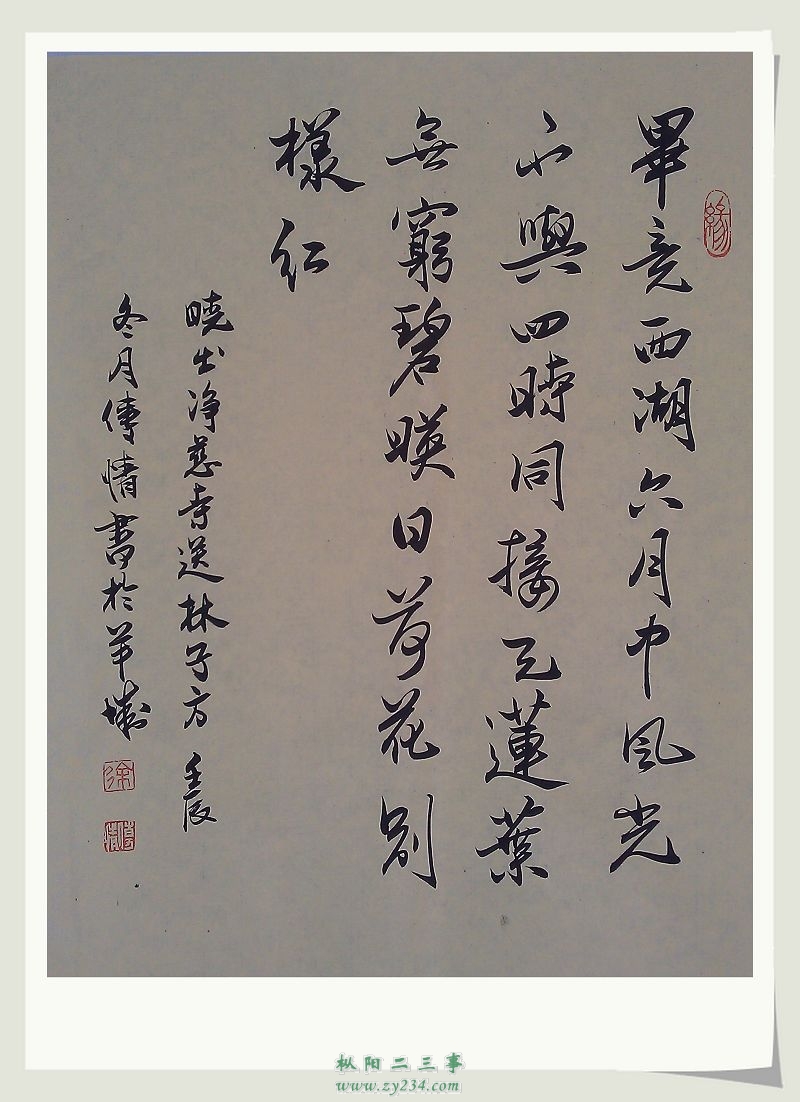 緣
畢竟西湖六月中風光
不與四時同接天蓮葉
無窮碧暎日荷花別
樣紅
曉出净慈寺送林子方 壬辰
冬月傳情書於羊城
徐
枞阳二三事
www.zy234.com